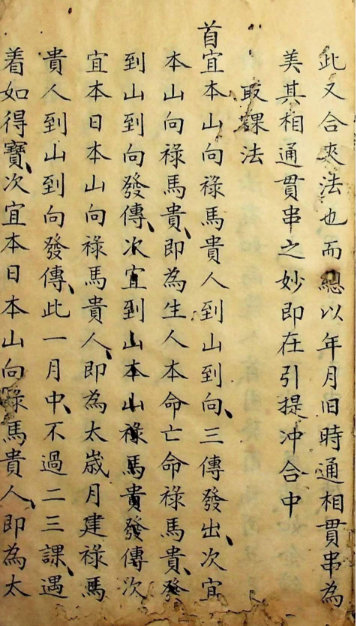 此又合夾法也而總以年月旧時通相貫串為
美其相通貫串之妙即在引提冲合中
取課法
首宜本山向祿馬貴人到山到向、三傳發出、次宜
本山向祿馬貴、即為生人本命亡命祿馬貴、發
到山到向發傳、次宜到山本山祿馬貴發傳次
宜本日本山向祿馬貴人、即為太歲月建祿馬
貴人到山到向發傳、此一月中、不過二三課、遇
着如得寶、次宜本日本山向祿馬貴人、即為太